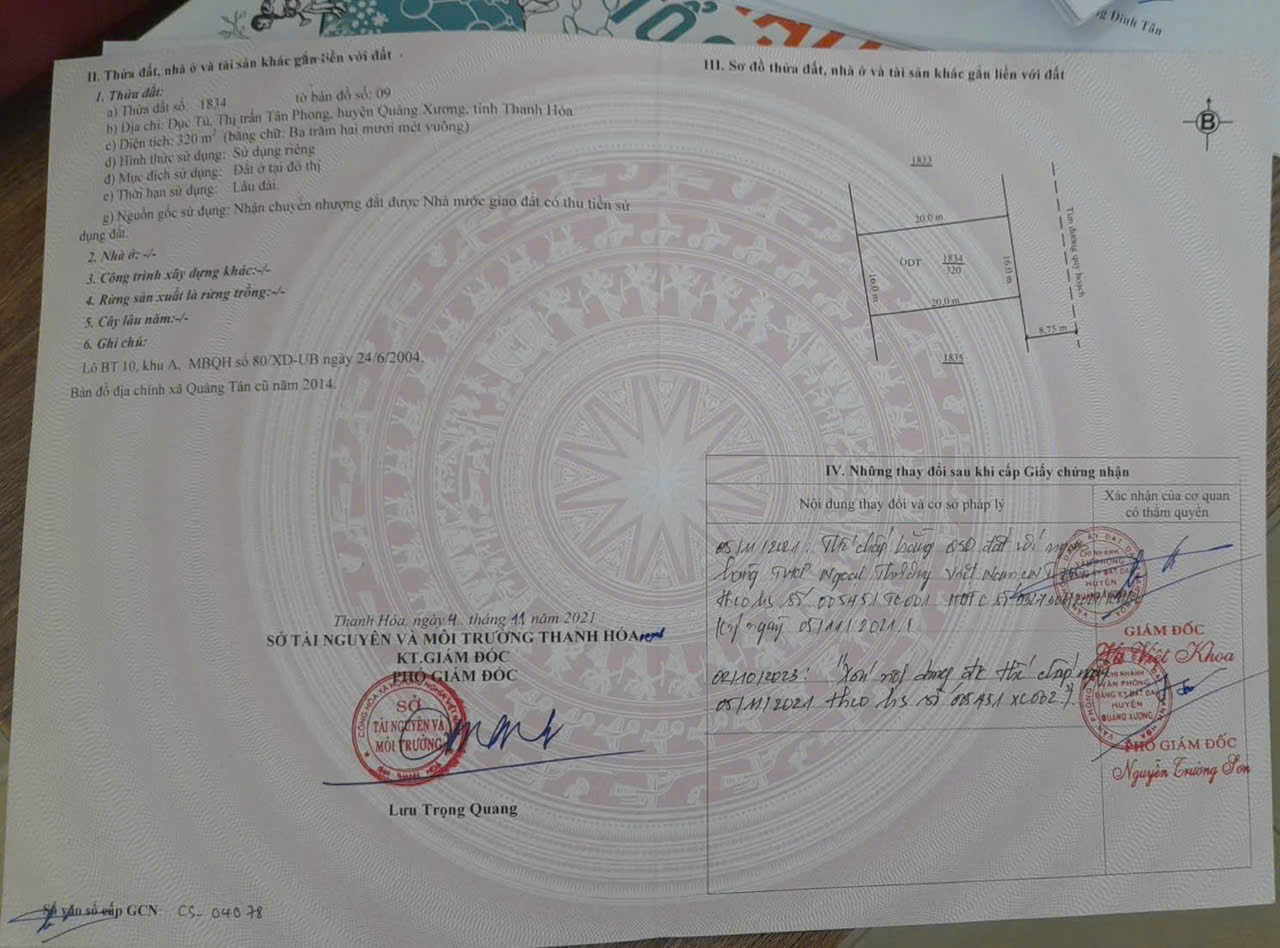 g Đình Tấn
II. Thửa đất, nhà ở và tài sản khác gắn liền với đất
1. Thửa đất:
a) Thửa đất số: 1834 tờ bản đồ số: 09
b) Địa chỉ: Dục Tú, Thị trấn Tân Phong, huyện Quảng Xương, tỉnh Thanh Hóa
c) Diện tích: 320 m² (bằng chữ: Ba trăm hai mươi mét vuông)
d) Hình thức sử dụng: Sử dụng riêng
đ) Mục đích sử dụng: Đất ở tại đô thị
e) Thời hạn sử dụng: Lâu dài.
g) Nguồn gốc sử dụng: Nhận chuyển nhượng đất được Nhà nước giao đất có thu tiền sử
dụng đất.
2. Nhà ở: -/-
3. Công trình xây dựng khác:-/-
4. Rừng sản xuất là rừng trồng:-/-
5. Cây lâu năm:-/-
6. Ghi chú:
Lô BT 10, khu A. MBQH số 80/XD-UB ngày 24/6/2004.
Bản đồ địa chính xã Quảng Tân cũ năm 2014.
Thanh Hóa, ngày 4 tháng 11 năm 2021
SỞ TÀI NGUYÊN VÀ MÔI TRƯỜNG THANH HÓA
KT.GIÁM ĐỐC
PHÓ GIÁM ĐỐC
SỞ
TÀI NGUYÊN VÀ
MÔI TRƯỜNG
Lưu Trọng Quang
Số vào sổ cấp GCN: CS-04078
III. Sơ đồ thửa đất, nhà ở và tài sản khác gắn liền với đất
B
1833
20.0 m
16.0 m
ODT 1834
320
16.0 m
20.0 m
Tim đường quy hoạch
8.75 m
1835
IV. Những thay đổi sau khi cấp Giấy chứng nhận
Nội dung thay đổi và cơ sở pháp lý
Xác nhận của cơ quan
có thẩm quyền
05/11/2021: Thế chấp bằng QSD đất với ngân
hàng TMCP Ngoại Thương Việt Nam CN
theo hs số 005451 TC001 HĐTC số
ký ngày 05/11/2021./.
CHI NHÁNH
VĂN PHÒNG
ĐĂNG KÝ ĐẤT ĐAI
HUYỆN
QUẢNG XƯƠNG
GIÁM ĐỐC
Vũ Viết Khoa
02/10/2023: "Xóa nội dung đk thế chấp ngày
05/11/2021 theo hs số 005451 XC002"/.
CHI NHÁNH
VĂN PHÒNG
ĐĂNG KÝ ĐẤT ĐAI
HUYỆN
QUẢNG XƯƠNG
PHÓ GIÁM ĐỐC
Nguyễn Trường Sơn